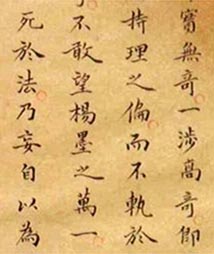 實無奇一涉高奇即
持理之偏而不軌於
不敢望楊墨之萬一
死於法乃妄自以為